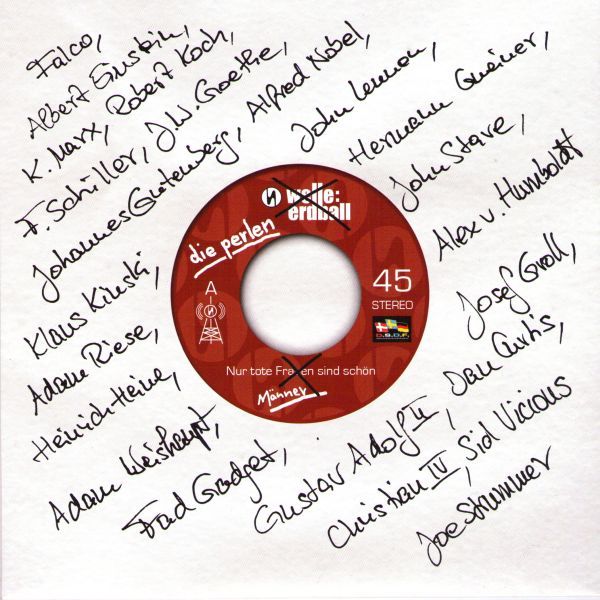 Falco,
Albert Einstein,
K. Marx, Robert Koch,
F. Schiller, J.W Goethe, Alfred Nobel,
Johannes Gutenberg,
John Lennon,
Hermann Gmeiner,
John Stave,
Alex v. Humboldt
welle:
erdball
die perlen
A
45
STEREO
Nur tote Frauen sind schön
Männer
Klaus Kinski,
Adam Riese,
Heinrich Heine,
Adam Weishaupt,
Frad Gadget,
Gustav Adolf II,
Dan Curtis,
Josef Groll,
Christian IV, Sid Vicious
Joe Strummer